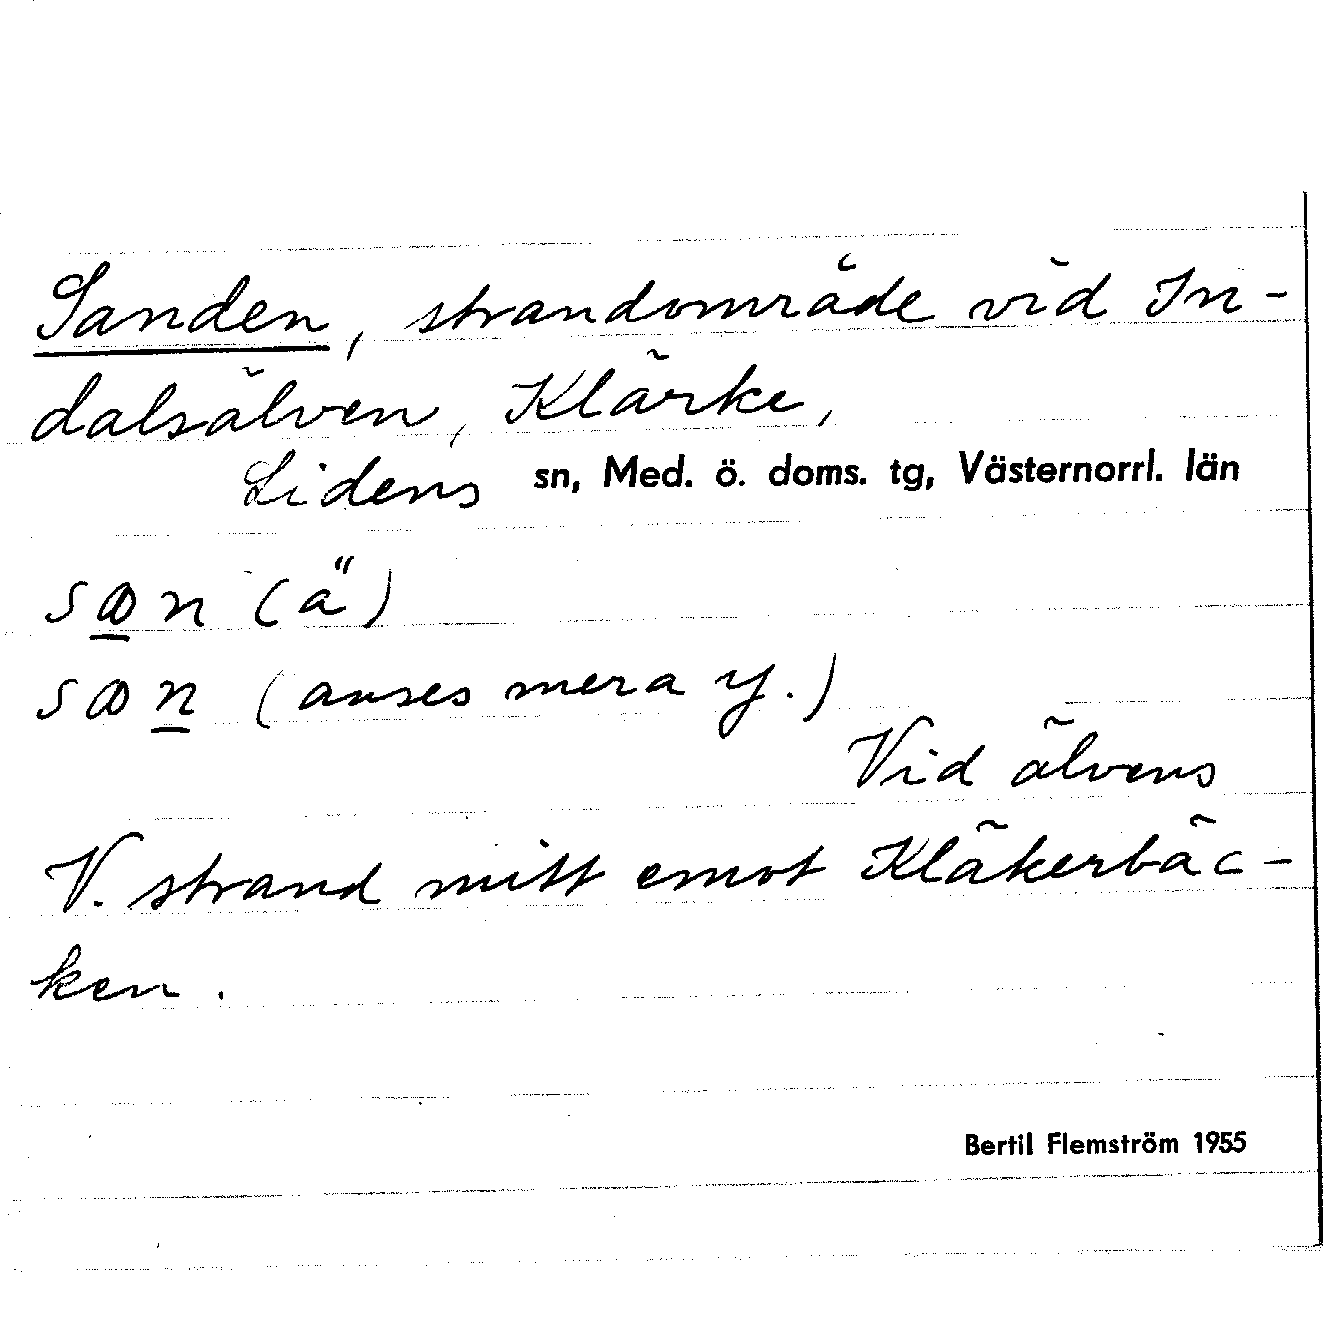 Sanden, strandområde vid In-
dalsälven, Klärke,
Lidens sn, Med. ö. doms. tg, Västernorrl. län
san (ä)
san (anses mera y.)
Vid älvens
V. strand mitt emot Kläkerbäc-
ken.
Bertil Flemström 1955